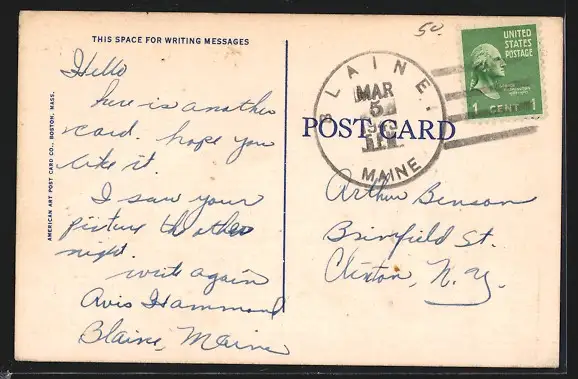 THIS SPACE FOR WRITING MESSAGES
Hello
here is another
card. hope you
like it.
I saw your
picture th other
night.
write again
Avis Hammond
Blaine, Maine
AMERICAN ART POST CARD CO., BOSTON, MASS.
50
UNITED
STATES
POSTAGE
1 CENT 1
BLAINE.
MAR
5
MAINE
POST CARD
Arthur Benson
Brimfield St.
Clinton, N.Y.